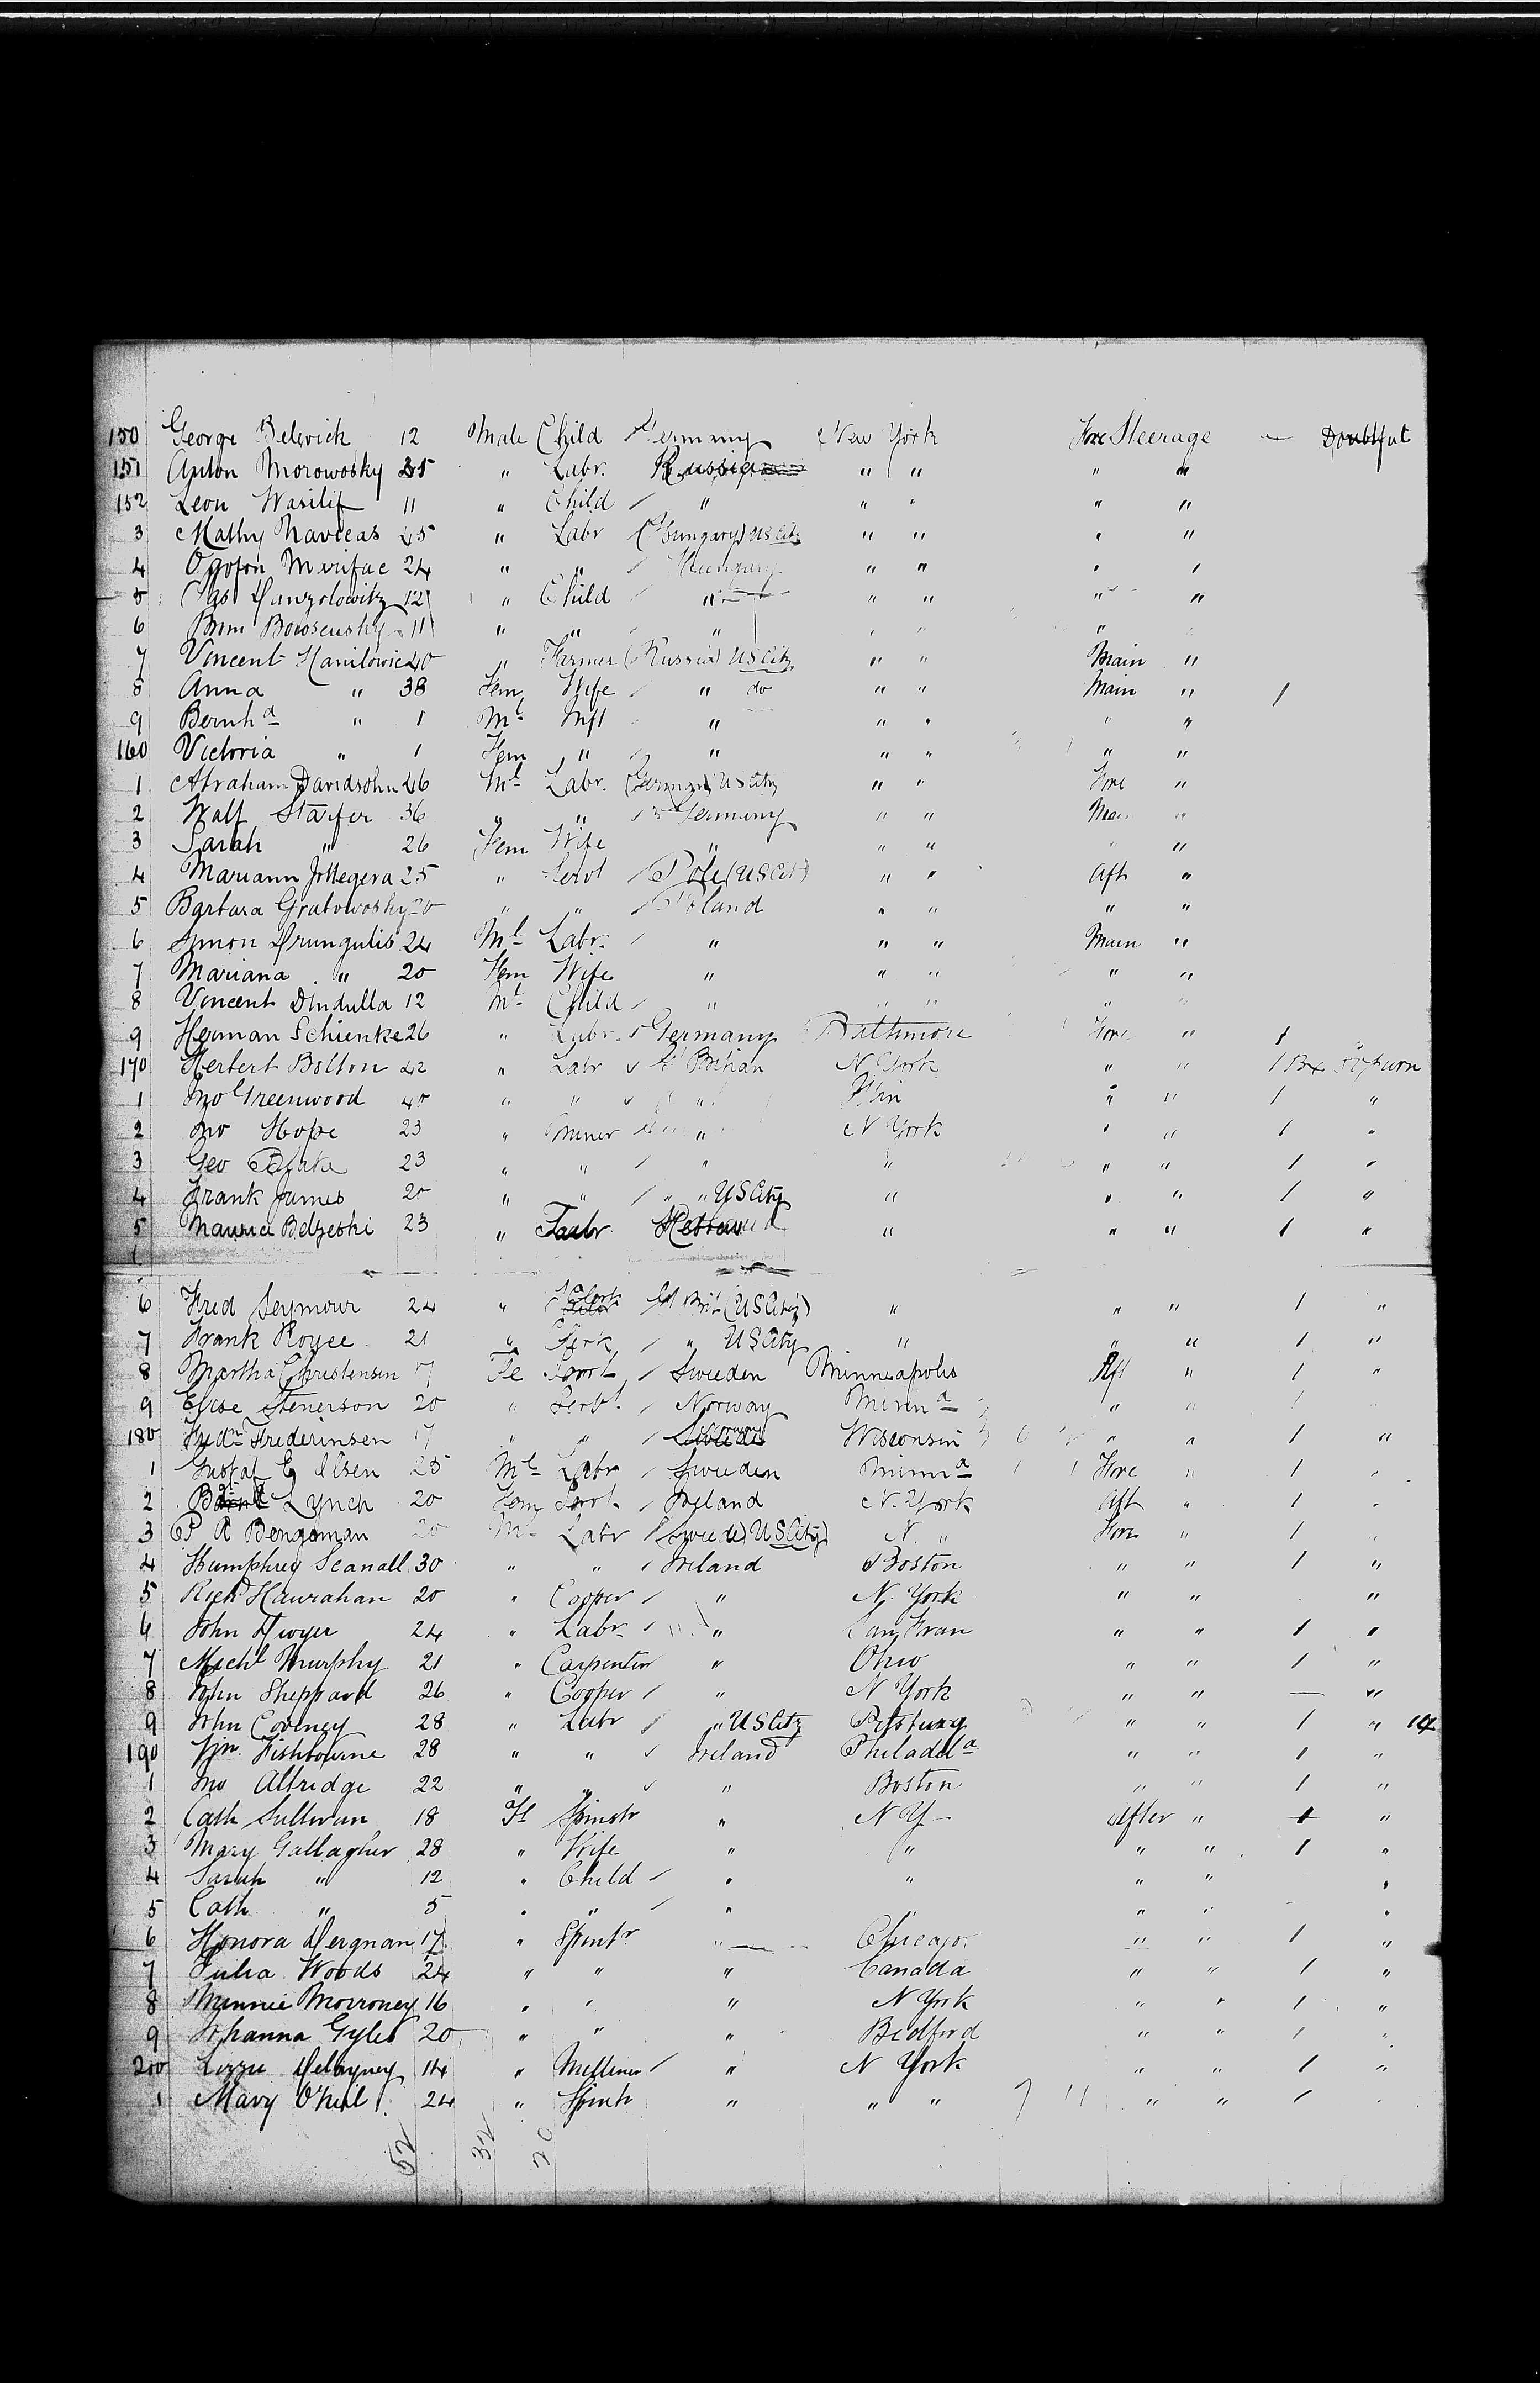 150 George Belevich 12 Male Child Germany New York Fore Steerage — Doubtful
151 Anton Morowosky 35 " Labr. Russia " " " "
152 Leon Wasilif 11 " Child " " " " "
3 Mathy Navieas 45 " Labr (Hungary) US Citz " " " "
4 24 " " Hungary " " " "
5 12 " Child " " " " "
6 11 " " " " " "
7 Vincent Hanilowic 40 " Farmer (Russia) US Citz " " Main "
8 Anna " 38 Fem Wife " do " " Main " 1
9 Bernhd " 1 Ml Inft " " " " "
160 Victoria " 1 Fem " " " " " "
1 Abraham Davidsohn 46 Ml Labr. (German) US City " " Fore "
2 Wolf Staifer 36 " " Germany " " Main "
3 Sarah " 26 Fem Wife " " " " "
4 Mariann 25 " Servt Pole (US Cit) " " Aft "
5 Barbara Grabowosky 20 " " Poland " " " "
6 Simon Drungulis 24 Ml Labr. " " " Main "
7 Mariana " 20 Fem Wife " " " " "
8 Vincent Dindulla 12 Ml Child " " " " "
9 Herman Schienke 26 " Labr Germany Baltimore Fore " 1
170 Herbert Bolton 42 " Labr Gt Britian N York " " 1 Bx
1 Jno Greenwood 40 " " " " " 1 "
2 Jno Hope 23 " Miner " N York " " 1 "
3 Geo 23 " " " " " " 1 "
4 Frank James 20 " " " " US City " " " 1 "
5 Maurice Belzeski 23 " " " " 1 "
6 Fred Seymour 24 " Clerk Gt Brit (US Citiz) " " " 1 "
7 Frank Royce 21 " Clerk " US City " " " 1 "
8 Martha Christensen 17 Fe Servt Sweden Minneapolis Aft " 1 "
9 Elise Stenerson 20 " Servt. Norway Minna " " 1
180 Fredn Frederinsen 17 " " Norway Wisconsin " " 1 "
1 Gustaf E Olsen 25 Ml Labr Sweden Minna Fore " 1 "
2 Lynch 20 Fem Servt. Ireland N. York Aft " 1 "
3 P R Bengoman 20 Ml Labr (Swede) US City) N. " Fore " 1 "
4 Humphrey Scanall 30 " " Ireland Boston " " 1 "
5 Richd Hanrahan 20 " Cooper " N. York " " "
6 John Dwyer 24 " Labr " San Fran " " 1 "
7 Michl Murphy 21 " Carpenter " Ohio " " 1 "
8 John Sheppard 26 " Cooper " N York " " — "
9 John Coveney 28 " Labr " US Citz Pittsburg " " 1 " 14
190 Wm. Fishbourne 28 " " Ireland Philadela " " 1 "
1 Jno Altridge 22 " " " Boston " " 1 "
2 Cath Sullivan 18 Fl Spinstr " N Y — After " 1 "
3 Mary Gallagher 28 " Wife " " " " 1 "
4 Sarah " 12 " Child " " " " "
5 Cath " 5 " " " " " " "
6 Honora Dergnan 17 " Spinstr " Chicago " " 1 "
7 Julia Woods 24 " " " Canada " " 1 "
8 Minnie Morroney 16 " " " N York " " 1 "
9 Johanna Gyles 20 " " " Bedford " " 1 "
200 Lizzie Delayney 14 " Milliner " N York " " 1 "
1 Mary O'Neil 24 " Spinstr " " " " " 1 "
52 32 20